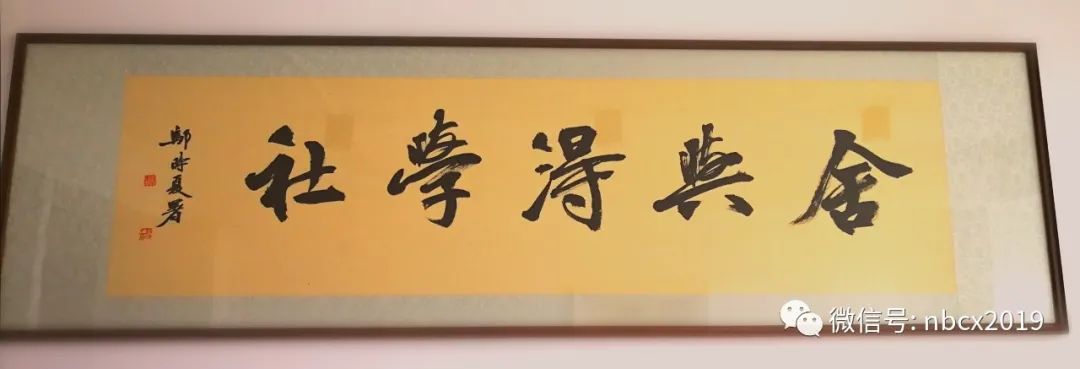 舍與得學社
鄔時夏署
微信号: nbcx2019